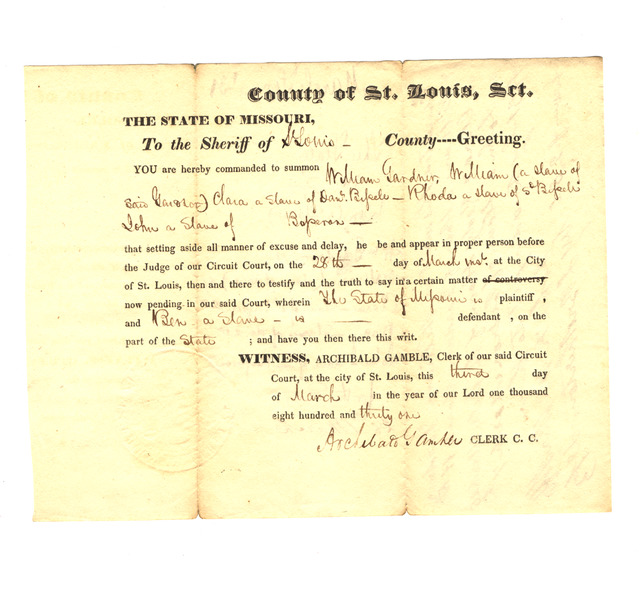 County of St. Louis, Sct.
THE STATE OF MISSOURI,
To the Sheriff of St Louis – County----Greeting.
YOU are hereby commanded to summon William Gardner, William (a slave of
said Gardner) Clara a slave of Danl. Bissele – Rhoda a slave of sd Bissele
John a Slave of
that setting aside all manner of excuse and delay, he be and appear in proper person before
the Judge of our Circuit Court, on the 28th – day of March inst. at the City
of St. Louis, then and there to testify and the truth to say in a certain matter of controversy
now pending in our said Court, wherein The State of Missouri is plaintiff ,
and Ben a Slave – is defendant , on the
part of the State ; and have you then there this writ.
WITNESS, ARCHIBALD GAMBLE, Clerk of our said Circuit
Court, at the city of St. Louis, this third day
of March in the year of our Lord one thousand
eight hundred and thirty one
Archibald Gamble CLERK C. C.